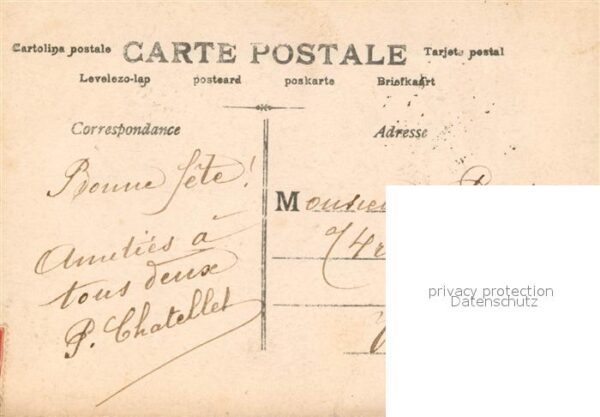 CARTE POSTALE
Cartolina postale
Tarjeta postal
Levelezo-lap postcard poskarte Briefkaart
Correspondance
Bonne fête !
Amitiés à
tous deux
P. Chatellet
Adresse
Monsieu
privacy protection
Datenschutz